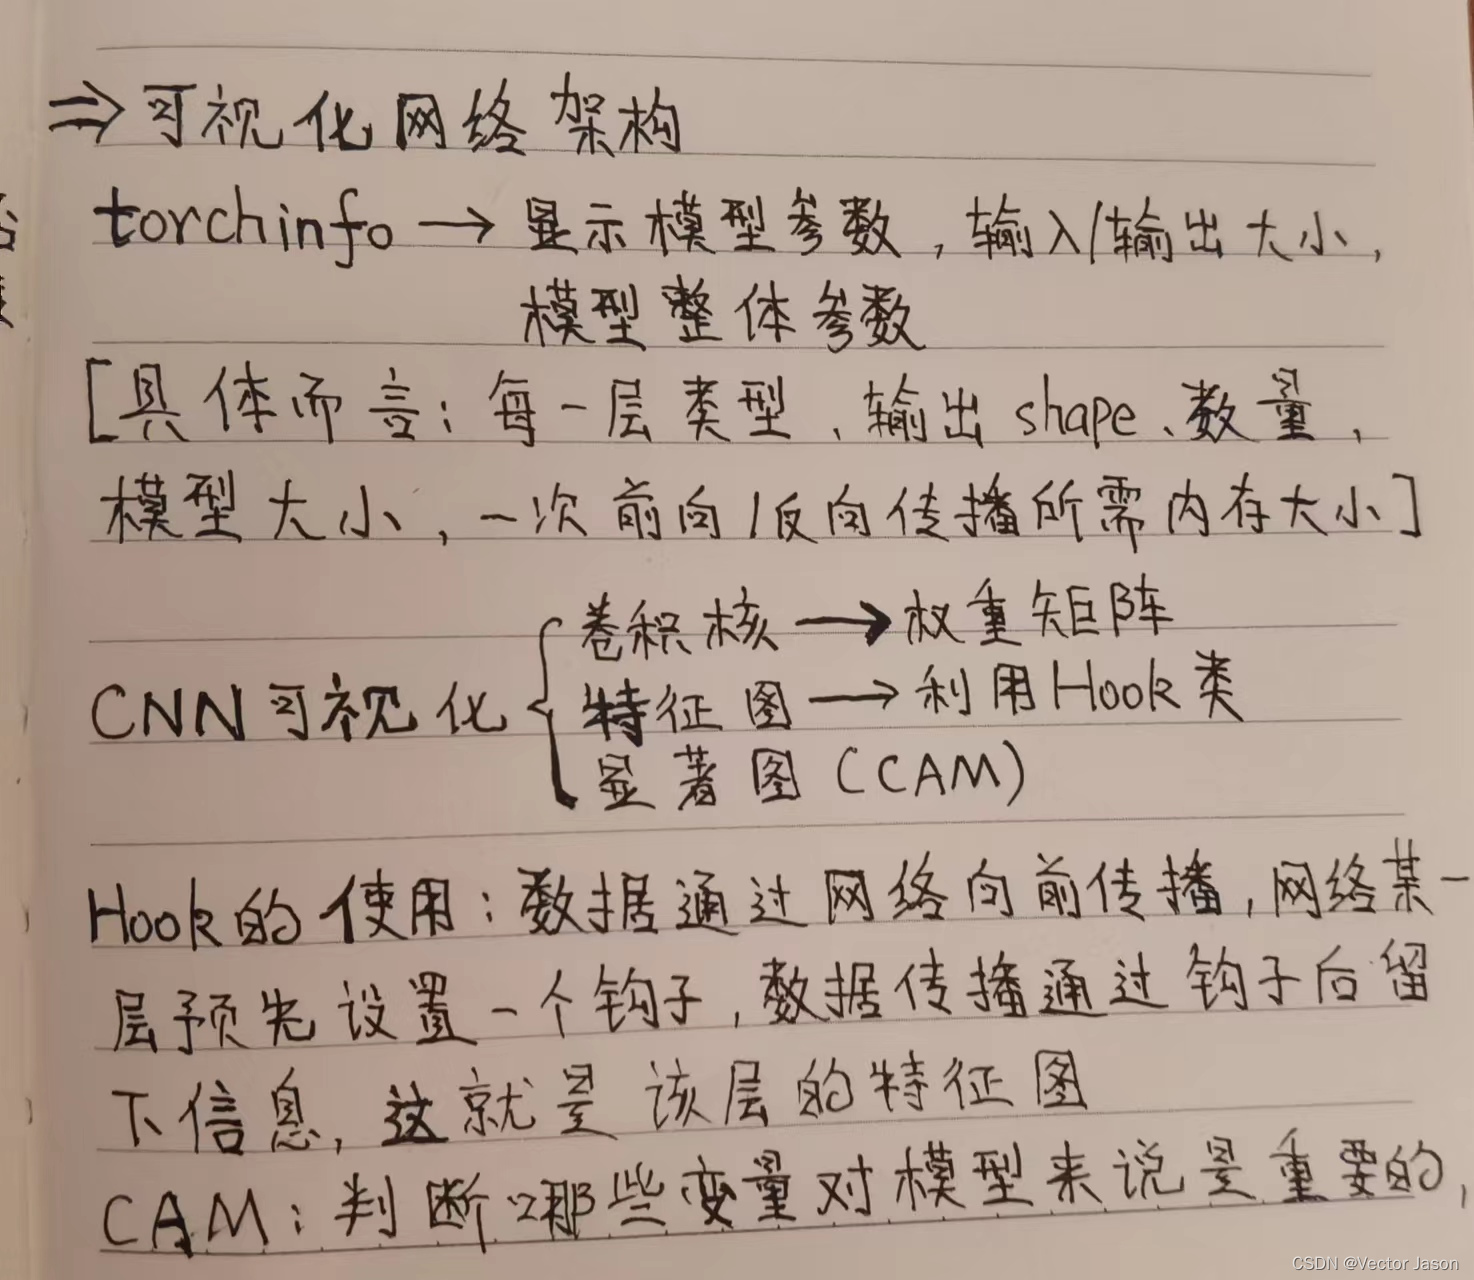 ⇒可视化网络架构
torchinfo → 显示模型参数，输入/输出大小，
模型整体参数
[具体而言：每一层类型、输出shape、数量，
模型大小，一次前向/反向传播所需内存大小]
卷积核 → 权重矩阵
CNN可视化 { 特征图 → 利用Hook类
显著图(CAM)
Hook的使用：数据通过网络向前传播，网络某一
层预先设置一个钩子，数据传播通过钩子后留
下信息，这就是该层的特征图
CAM：判断哪些变量对模型来说是重要的，
CSDN @Vector Jason